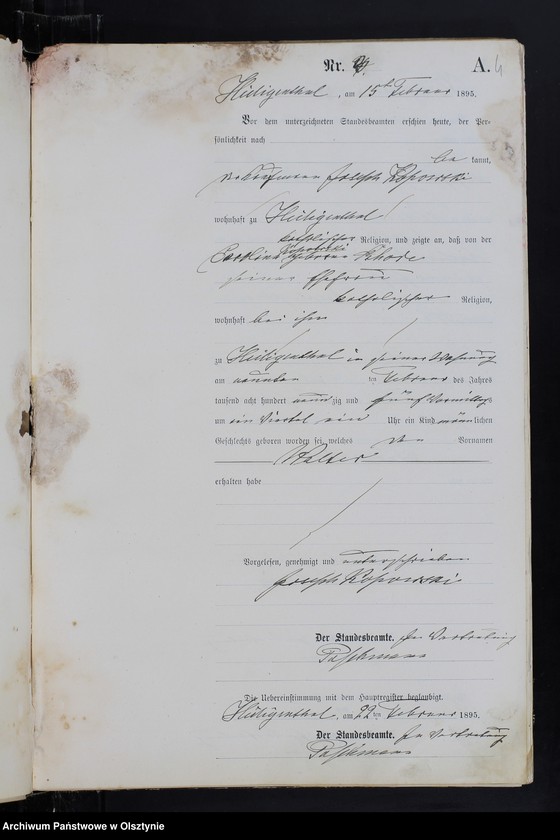 Nr. 4. A. 4
Heiligenthal, am 15ten Februar 1895.
Vor dem unterzeichneten Standesbeamten erschien heute, der Per-
sönlichkeit nach
be kannt,
Joseph Kopowski
wohnhaft zu Heiligenthal
katholischer Religion, und zeigte an, daß von der
geborene Rhode
seiner Ehefrau
katholischer Religion,
wohnhaft bei ihm
zu Heiligenthal in seiner Wohnung
am neunten ten Februar des Jahres
tausend acht hundert neun zig und fünf Vormittags
um ein Viertel ein Uhr ein Kind männlichen
Geschlechts geboren worden sei, welches den Vornamen
Walter
erhalten habe
Vorgelesen, genehmigt und unterschrieben
Joseph Kopowski
Der Standesbeamte. In Vertretung
Die Uebereinstimmung mit dem Hauptregister beglaubigt.
Heiligenthal, am 22 ten Februar 1895.
Der Standesbeamte. In Vertretung
Archiwum Państwowe w Olsztynie